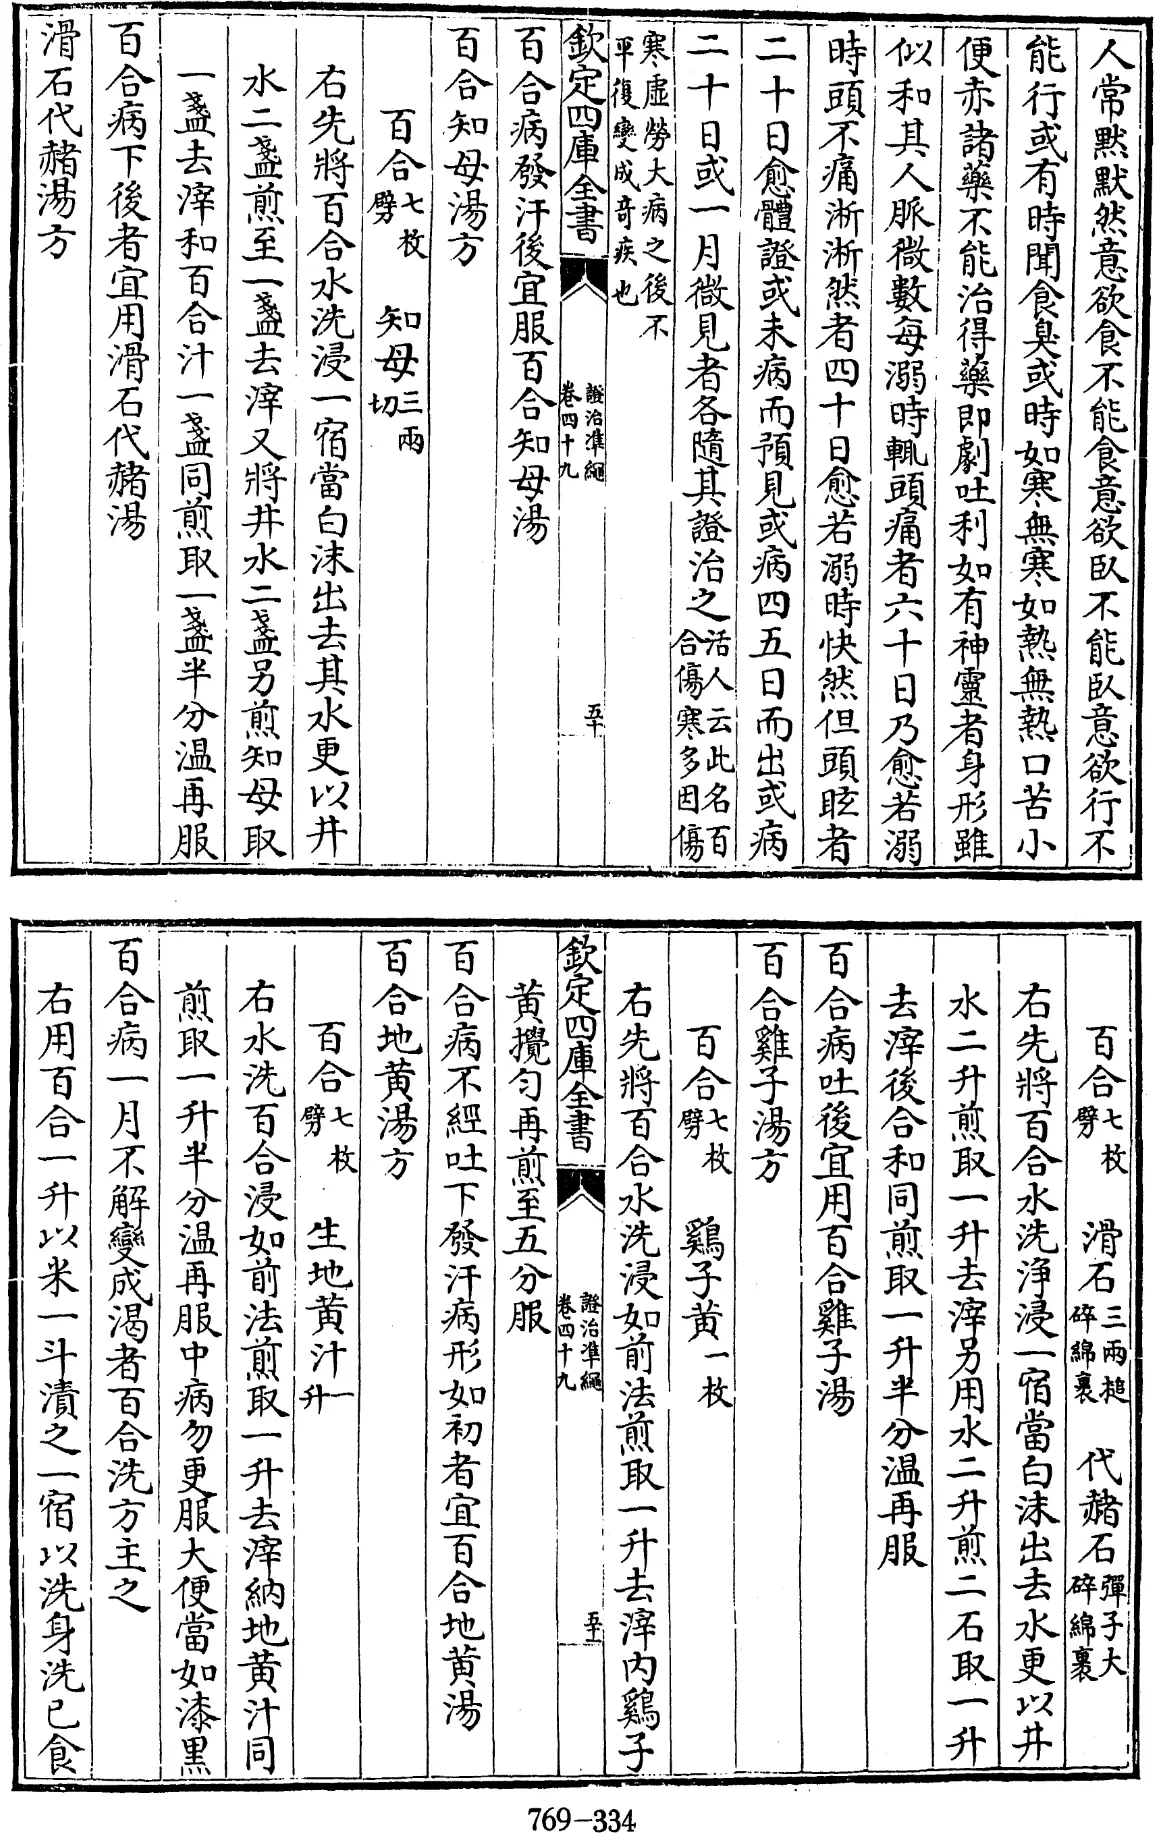 人常默默然意欲食不能食意欲臥不能臥意欲行不
能行或有時聞食臭或時如寒無寒如熱無熱口苦小
便赤諸藥不能治得藥即劇吐利如有神靈者身形雖
似和其人脈微數每溺時輒頭痛者六十日乃愈若溺
時頭不痛淅淅然者四十日愈若溺時快然但頭眩者
二十日愈體證或未病而預見或病四五日而出或病
二十日或一月微見者各隨其證治之活人云此名百
合傷寒多因傷
寒虛勞大病之後不
平復變成奇疾也
欽定四庫全書
證治準繩
卷四十九
五十
百合病發汗後宜服百合知母湯
百合知母湯方
百合七枚
劈
知母三兩
切
右先將百合水洗浸一宿當白沫出去其水更以井
水二盞煎至一盞去滓又將井水二盞另煎知母取
一盞去滓和百合汁一盞同煎取一盞半分溫再服
百合病下後者宜用滑石代赭湯
滑石代赭湯方
百合七枚
劈
滑石三兩搥
碎綿裹
代赭石彈子大
碎綿裹
右先將百合水洗浄浸一宿當白沫出去水更以井
水二升煎取一升去滓另用水二升煎二石取一升
去滓後合和同煎取一升半分溫再服
百合病吐後宜用百合雞子湯
百合雞子湯方
百合七枚
劈
鷄子黄一枚
右先將百合水洗浸如前法煎取一升去滓内鷄子
欽定四庫全書
證治準繩
卷四十九
五十一
黄攪匀再煎至五分服
百合病不經吐下發汗病形如初者宜百合地黄湯
百合地黄湯方
百合七枚
劈
生地黄汁一
升
右水洗百合浸如前法煎取一升去滓納地黄汁同
煎取一升半分溫再服中病勿更服大便當如漆黒
百合病一月不解變成渴者百合洗方主之
右用百合一升以米一斗漬之一宿以洗身洗已食
769-334